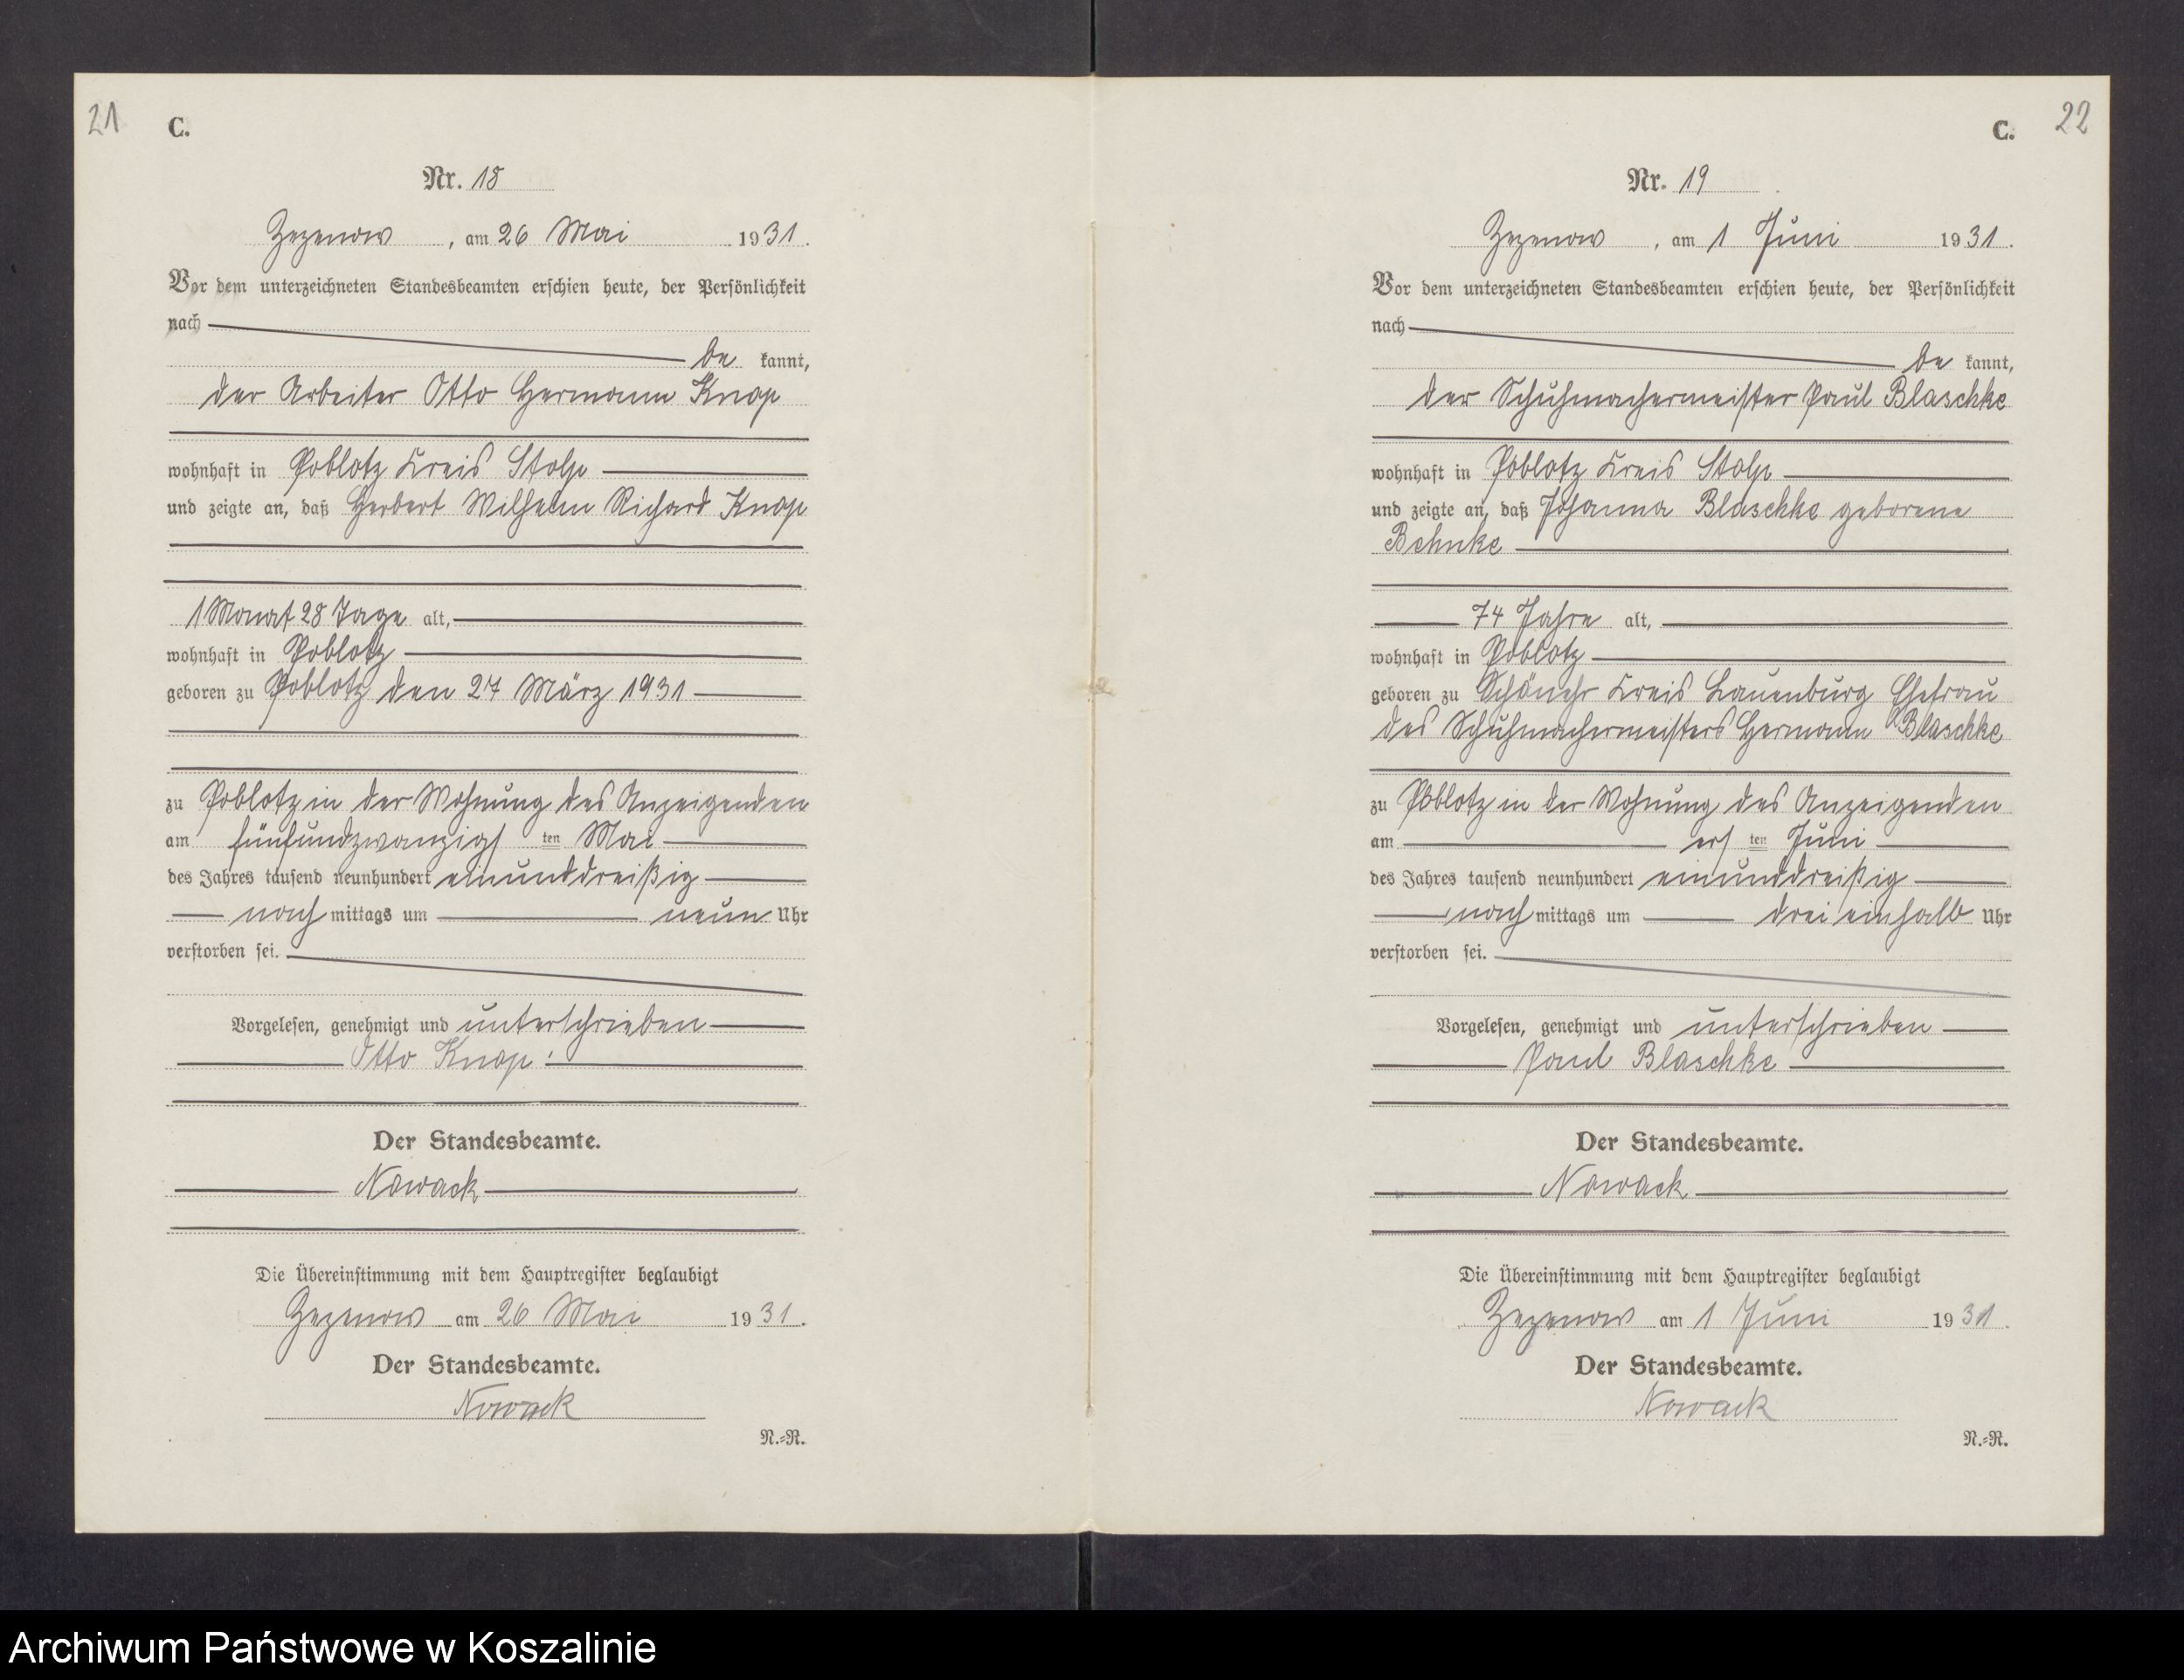 21
C.
Nr. 18
Zezenow, am 26 Mai 1931.
Vor dem unterzeichneten Standesbeamten erschien heute, der Persönlichkeit
nach
be kannt,
der Arbeiter Otto Hermann Knop
wohnhaft in Poblotz Kreis Stolp
und zeigte an, daß Herbert Wilhelm Richard Knop
1 Monat 28 Tage alt,
wohnhaft in Poblotz
geboren zu Poblotz den 27 März 1931
zu Poblotz in der Wohnung des Anzeigenden
am fünfundzwanzigsten Mai
des Jahres tausend neunhundert einunddreißig
nach mittags um neun Uhr
verstorben sei.
Vorgelesen, genehmigt und unterschrieben
Otto Knop.
Der Standesbeamte.
Nowack
Die Übereinstimmung mit dem Hauptregister beglaubigt
Zezenow am 26 Mai 1931.
Der Standesbeamte.
Nowack
N.=R.
22
C.
Nr. 19
Zezenow, am 1 Juni 1931.
Vor dem unterzeichneten Standesbeamten erschien heute, der Persönlichkeit
nach
be kannt,
der Schuhmachermeister Paul Blaschke
wohnhaft in Poblotz Kreis Stolp
und zeigte an, daß Johanna Blaschke geborene
Behnke
74 Jahre alt,
wohnhaft in Poblotz
geboren zu Schönehr Kreis Lauenburg Ehefrau
des Schuhmachermeisters Hermann Blaschke
zu Poblotz in der Wohnung des Anzeigenden
am ersten Juni
des Jahres tausend neunhundert einunddreißig
nach mittags um drei einhalb Uhr
verstorben sei.
Vorgelesen, genehmigt und unterschrieben
Paul Blaschke
Der Standesbeamte.
Nowack
Die Übereinstimmung mit dem Hauptregister beglaubigt
Zezenow am 1 Juni 1931.
Der Standesbeamte.
Nowack
N.=R.
Archiwum Państwowe w Koszalinie